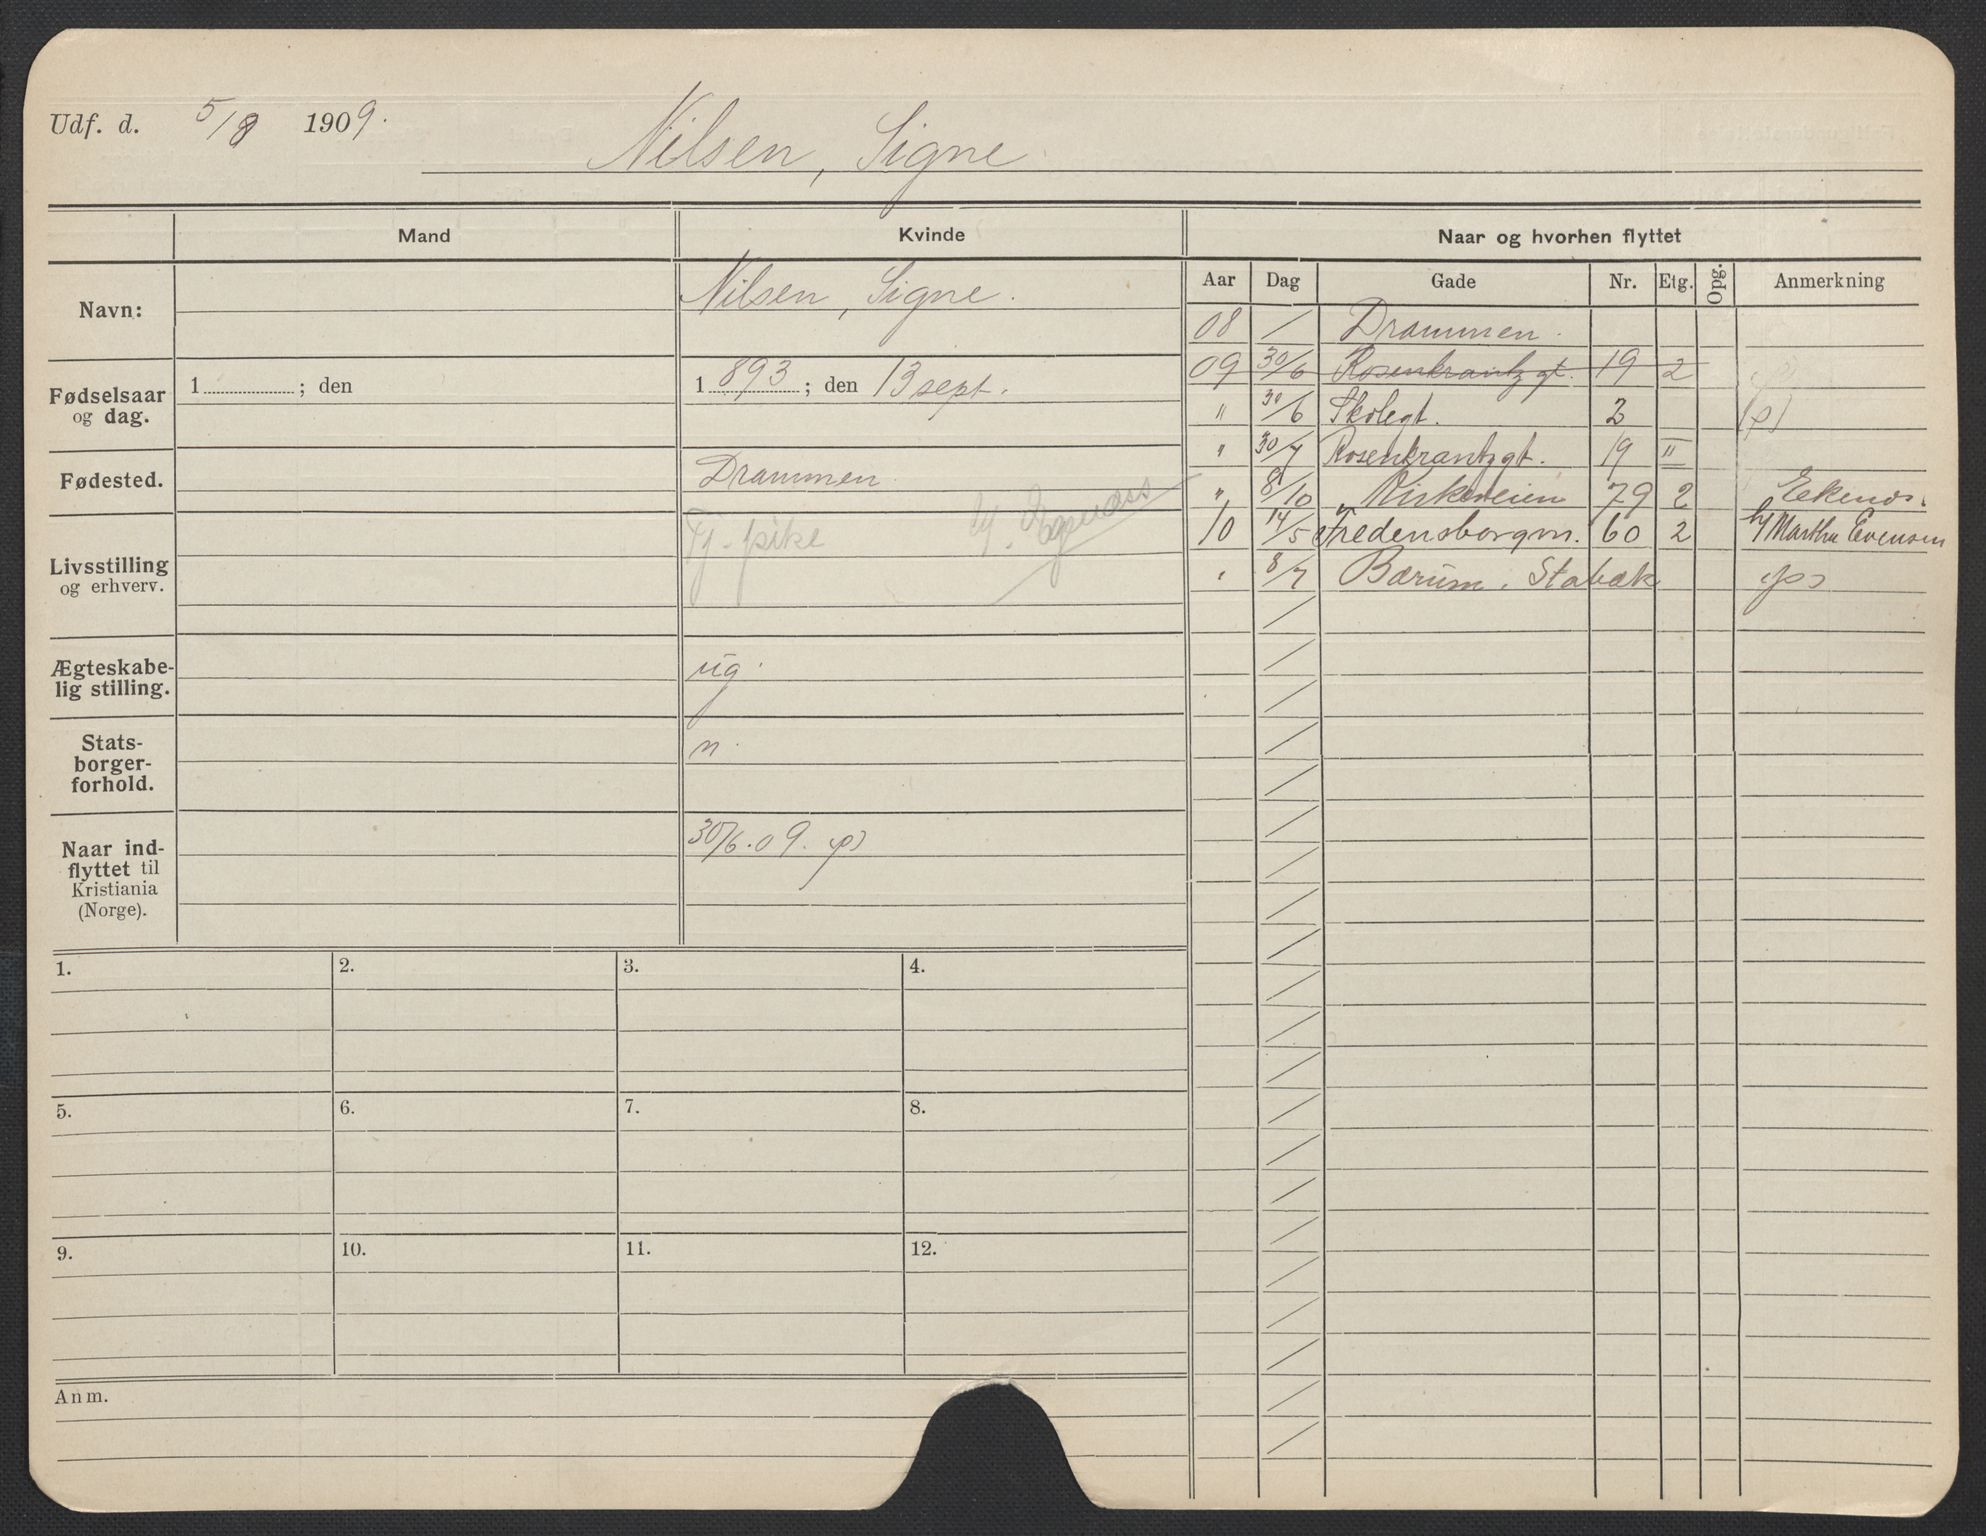 Udf. d. 5/8 1909.
Nilsen, Signe
Mand Kvinde Naar og hvorhen flyttet
Aar Dag Gade Nr. Etg. Opg. Anmerkning
Navn: Nilsen, Signe.
Fødselsaar og dag. 1 ; den 1893; den 13 sept.
Fødested. Drammen
Livsstilling og erhverv. Tj. pike
Ægteskabelig stilling. ug.
Statsborgerforhold. n.
Naar indflyttet til Kristiania (Norge). 30/6.09. ps
08 / Drammen.
09 30/6 Rosenkrantzgt. 19 2
" 30/6 Skolegt. 2 (ps)
" 30/7 Rosenkrantzgt. 19 "
" 8/10 Kirkeveien 79 2
10 14/5 Fredensborgvn. 60 2 h/ Martha Evensen
" 8/7 Bærum. Stabæk ps
1. 2. 3. 4.
5. 6. 7. 8.
9. 10. 11. 12.
Anm.